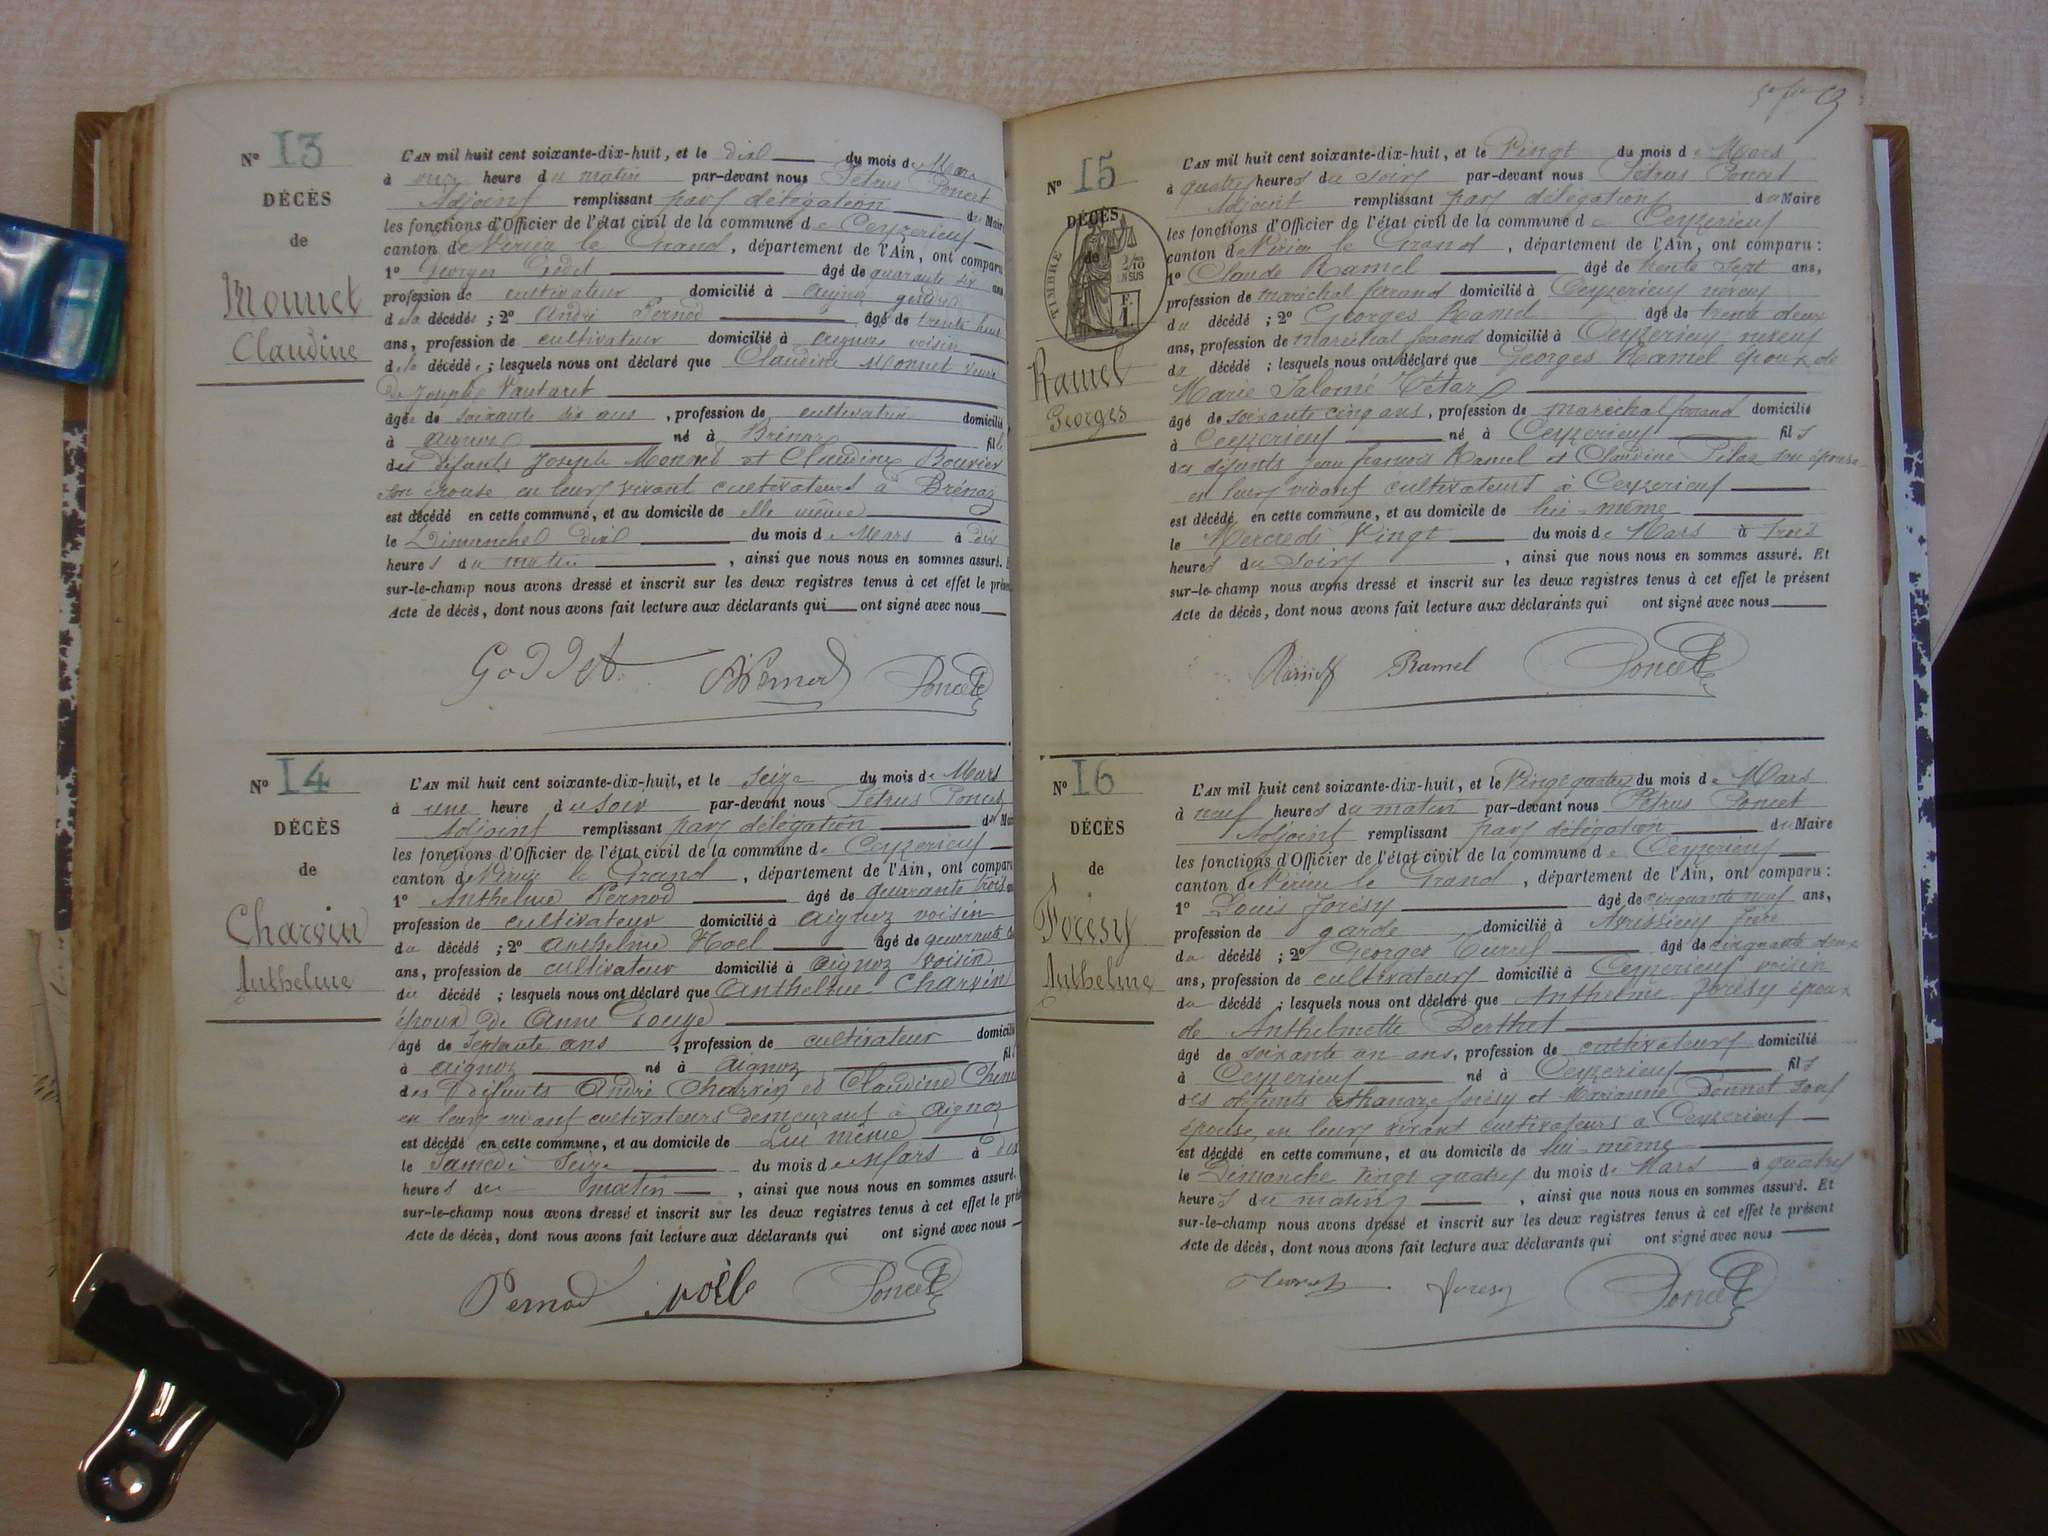 N° 13
DÉCÈS
de
Monnet
Claudine
L'AN mil huit cent soixante-dix-huit, et le dix du mois de Mars
à onze heure du matin par-devant nous Pétrus Poncet
Adjoint remplissant par délégation du Maire
les fonctions d'Officier de l'état civil de la commune de Ceyzerieu
canton de Virieu le Grand, département de l'Ain, ont comparu
1° Georges Godet âgé de quarante six ans
profession de cultivateur domicilié à aignoz
de la décédée ; 2° André Pernod âgé de trente huit
ans, profession de cultivateur domicilié à aignoz voisin
de la décédée ; lesquels nous ont déclaré que Claudine Monnet veuve
de Joseph Vautaret
âgée de soixante six ans, profession de cultivatrice domicilié
à aignoz né à Brénaz fille
des défunts Joseph Monnet et Claudine Bouvier
son épouse en leur vivant cultivateurs à Brénaz
est décédé en cette commune, et au domicile de elle même
le Dimanche dix du mois de Mars à dix
heures du matin, ainsi que nous nous en sommes assuré. E
sur-le-champ nous avons dressé et inscrit sur les deux registres tenus à cet effet le prése
Acte de décès, dont nous avons fait lecture aux déclarants qui ont signé avec nous
Goddet Pernod Poncet
N° 14
DÉCÈS
de
Charvin
Anthelme
L'AN mil huit cent soixante-dix-huit, et le seize du mois de Mars
à une heure du soir par-devant nous Pétrus Poncet
Adjoint remplissant par délégation du Mai
les fonctions d'Officier de l'état civil de la commune de Ceyzerieu
canton de Virieu le Grand, département de l'Ain, ont comparu
1° Anthelme Pernod âgé de quarante trois
profession de cultivateur domicilié à aignoz voisin
du décédé ; 2° anthelme Noël âgé de quarante
ans, profession de cultivateur domicilié à aignoz voisin
du décédé ; lesquels nous ont déclaré que Anthelme Charvin
époux de Anne Gouge
âgé de septante ans, profession de cultivateur domicilié
à aignoz né à aignoz fils
des défunts André Charvin et Claudine
en leur vivant cultivateurs demeurant à aignoz
est décédé en cette commune, et au domicile de Lui même
le Samedi seize du mois de Mars à dix
heures du matin, ainsi que nous nous en sommes assuré.
sur-le-champ nous avons dressé et inscrit sur les deux registres tenus à cet effet le prés
Acte de décès, dont nous avons fait lecture aux déclarants qui ont signé avec nous
Pernod Noële Poncet
N° 15
DÉCÈS
de
TIMBRE
2/10
EN SUS
F.
1.
Ramel
Georges
L'AN mil huit cent soixante-dix-huit, et le Vingt du mois de Mars
à quatre heures du soir par-devant nous Pétrus Poncet
Adjoint remplissant par délégation du Maire
les fonctions d'Officier de l'état civil de la commune de Ceyzerieu
canton de Virieu le Grand, département de l'Ain, ont comparu :
1° Claude Ramel âgé de trente sept ans,
profession de maréchal ferand domicilié à Ceyzerieu neveu
du décédé ; 2° Georges Ramel âgé de trente deux
ans, profession de maréchal ferand domicilié à Ceyzerieu neveu
du décédé ; lesquels nous ont déclaré que Georges Ramel époux de
Marie Salomé Tétar
âgé de soixante cinq ans, profession de maréchal ferand domicilié
à Ceyzerieu né à Ceyzerieu fils
des défunts Jean françois Ramel et Claudine Pilaz son épouse
en leur vivant cultivateurs à Ceyzerieu
est décédé en cette commune, et au domicile de lui-même
le Mercredi Vingt du mois de Mars à trois
heures du soir, ainsi que nous nous en sommes assuré. Et
sur-le-champ nous avons dressé et inscrit sur les deux registres tenus à cet effet le présent
Acte de décès, dont nous avons fait lecture aux déclarants qui ont signé avec nous
Ramel Ramel Poncet
N° 16
DÉCÈS
de
Forésy
Anthelme
L'AN mil huit cent soixante-dix-huit, et le Vingt quatre du mois de Mars
à neuf heures du matin par-devant nous Pétrus Poncet
Adjoint remplissant par délégation du Maire
les fonctions d'Officier de l'état civil de la commune de Ceyzerieu
canton de Virieu le Grand, département de l'Ain, ont comparu :
1° Louis forésy âgé de cinquante neuf ans,
profession de garde domicilié à Avressieux frère
du décédé ; 2° Georges âgé de cinquante deux
ans, profession de cultivateur domicilié à Ceyzerieu voisin
du décédé ; lesquels nous ont déclaré que Anthelme forésy époux
de Anthelmette Berthet
âgé de soixante un ans, profession de cultivateur domicilié
à Ceyzerieu né à Ceyzerieu fils
des défunts athanaze forésy et Marianne Bonnet son
épouse, en leur vivant cultivateurs à Ceyzerieu
est décédé en cette commune, et au domicile de lui-même
le Dimanche vingt quatre du mois de Mars à quatre
heures du matin, ainsi que nous nous en sommes assuré. Et
sur-le-champ nous avons dressé et inscrit sur les deux registres tenus à cet effet le présent
Acte de décès, dont nous avons fait lecture aux déclarants qui ont signé avec nous
foresy Poncet